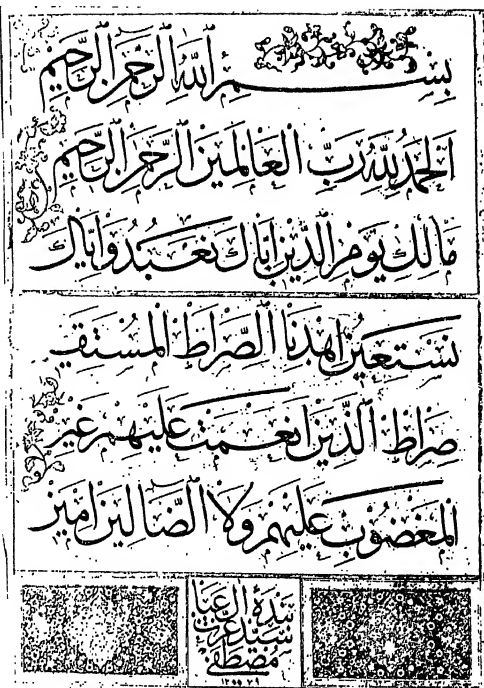 بِسْمِ اللَّهِ الرَّحْمٰنِ الرَّحِيمِ
الْحَمْدُ لِلَّهِ رَبِّ الْعَالَمِينَ الرَّحْمٰنِ الرَّحِيمِ
مَالِكِ يَوْمِ الدِّينِ إِيَّاكَ نَعْبُدُ وَإِيَّاكَ
نَسْتَعِينُ اهْدِنَا الصِّرَاطَ الْمُسْتَقِيمَ
صِرَاطَ الَّذِينَ أَنْعَمْتَ عَلَيْهِمْ غَيْرِ
الْمَغْضُوبِ عَلَيْهِمْ وَلَا الضَّالِّينَ آمِينَ
بنده آل عبا
سید عزت
مصطفی